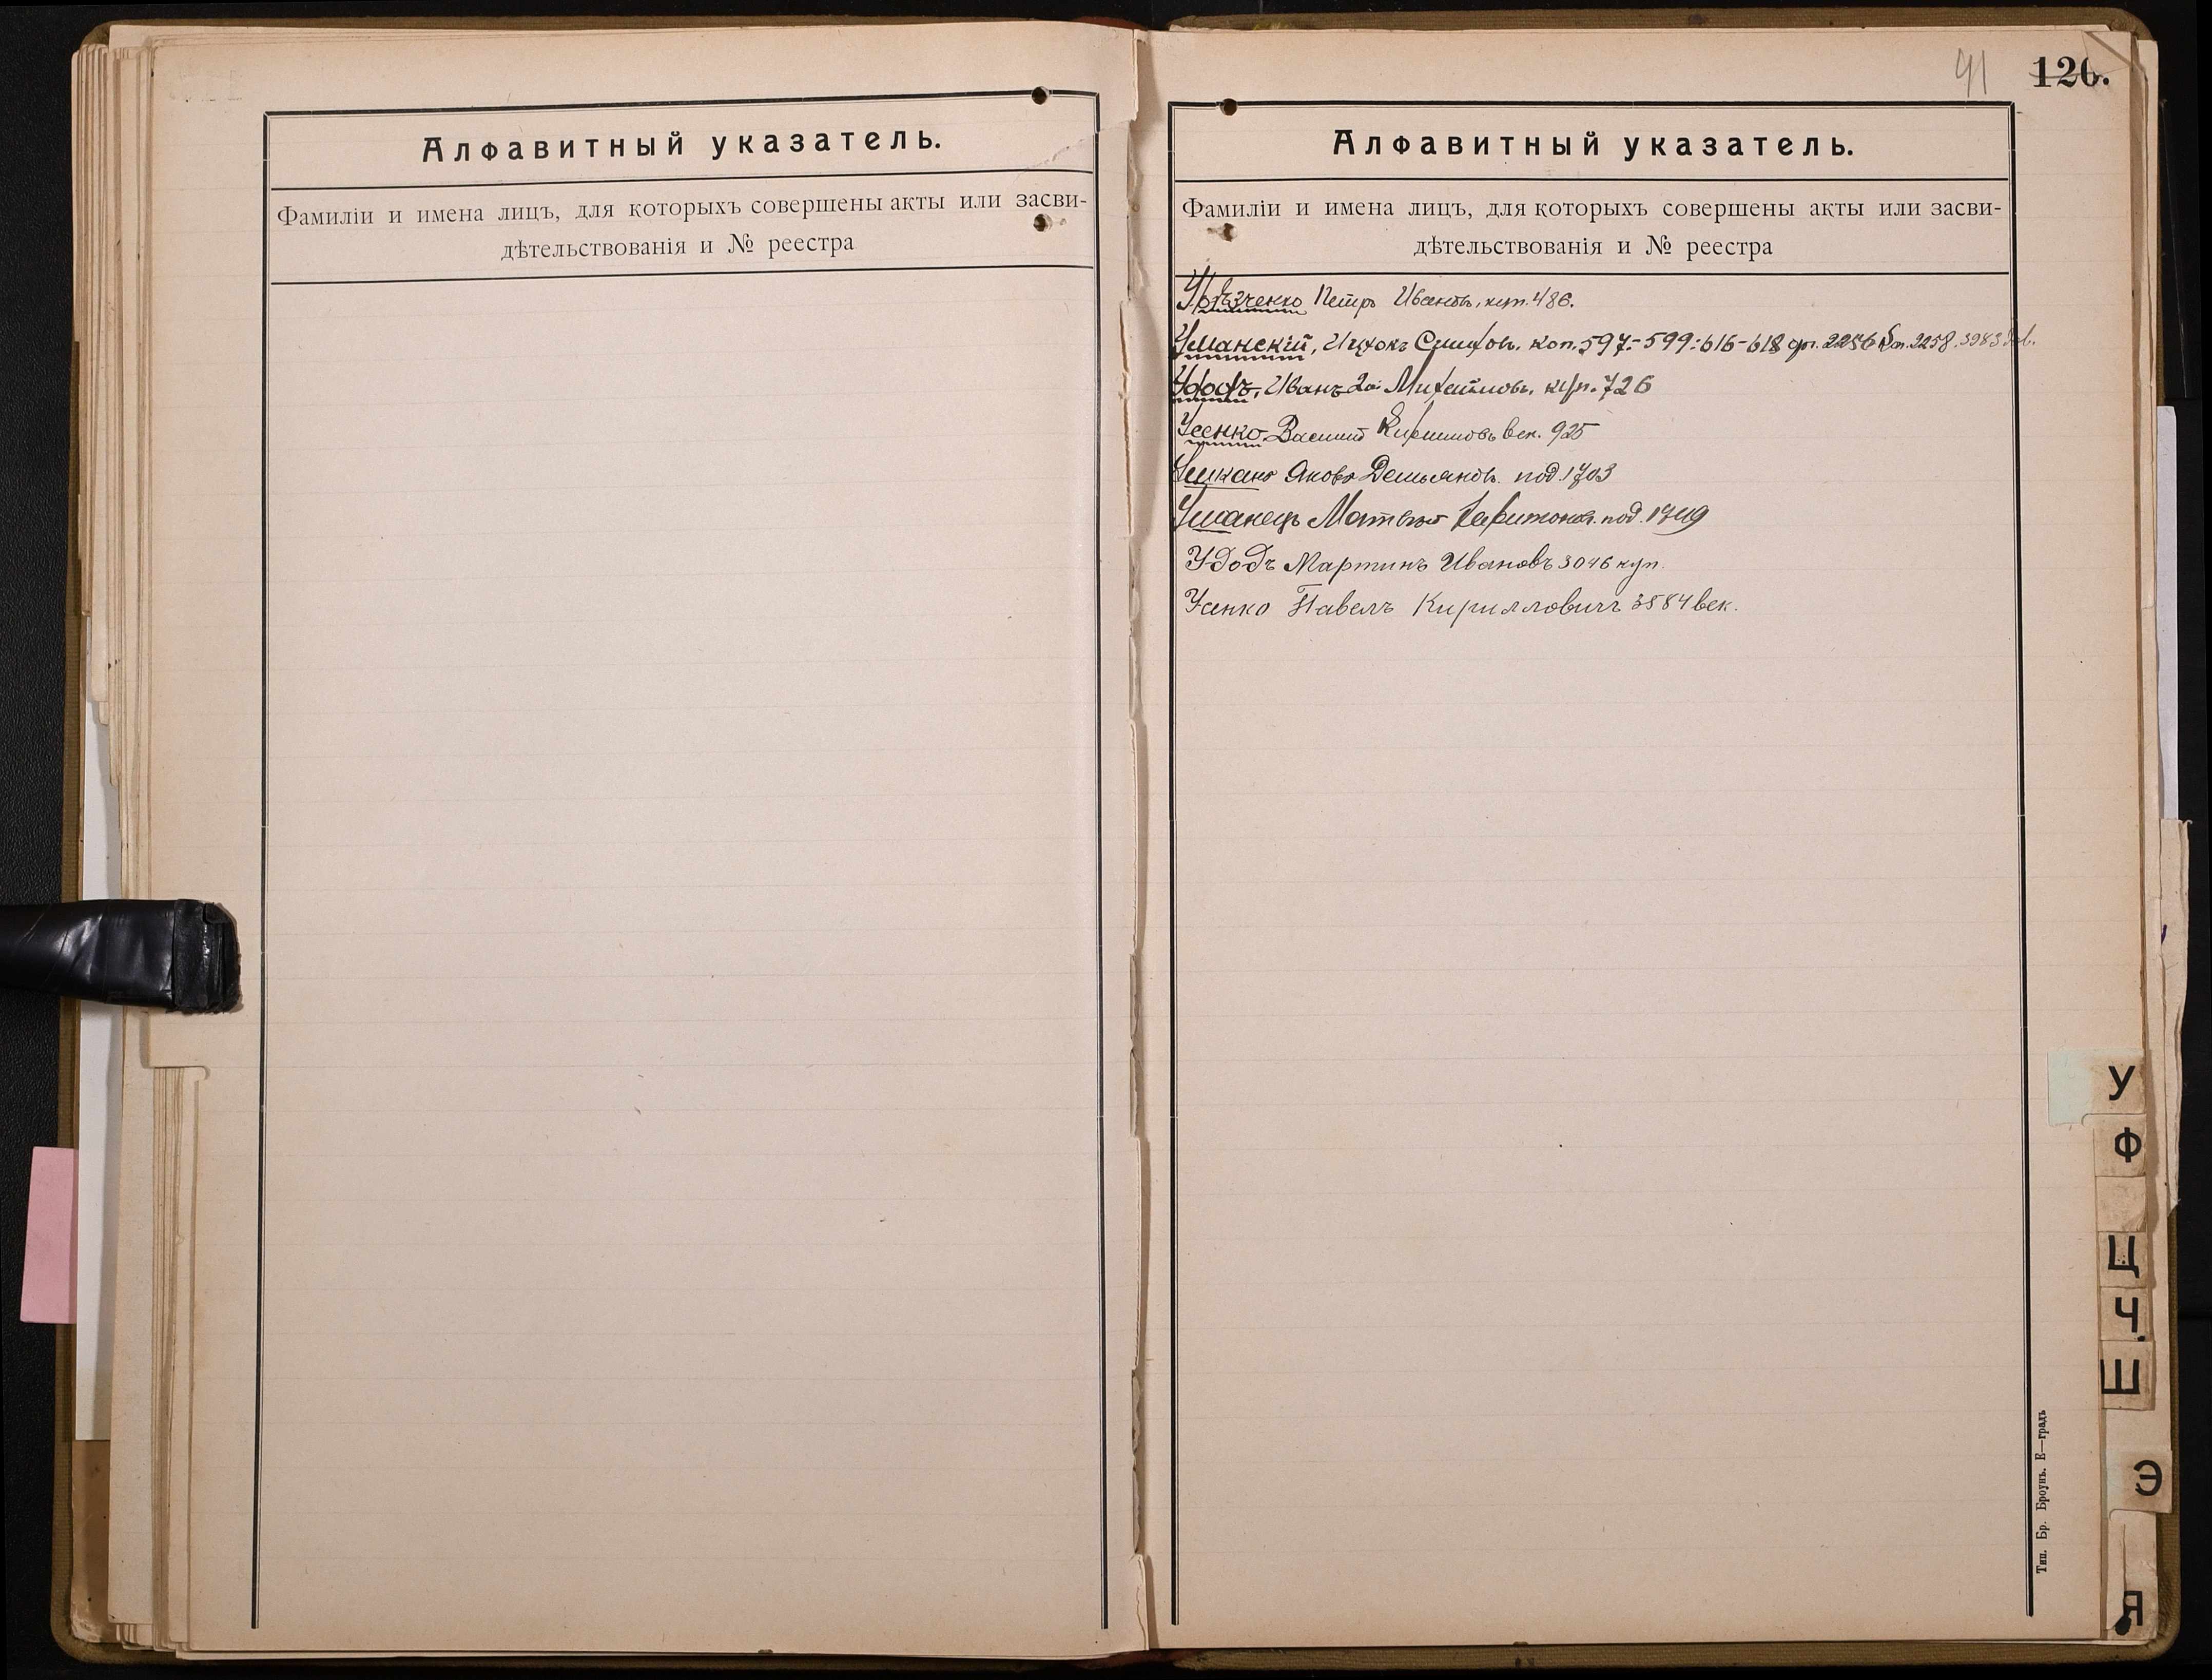 Алфавитный указатель.
Фамиліи и имена лицъ, для которыхъ совершены акты или засви-
дѣтельствованія и № реестра
41 126.
Алфавитный указатель.
Фамиліи и имена лицъ, для которыхъ совершены акты или засви-
дѣтельствованія и № реестра
Петръ Ивановъ, куп. 486.
Уманскій, Ицхокъ коп. 597-599-616-618 2256 2258. 3983
Удодъ, Иванъ 2й Михайловъ, куп. 726
Усенко Василій Кирилловъ век. 925
Яковъ Демьяновъ. под. 1703
Уманецъ Матвѣй Харитоновъ. под. 1749
Удодъ Мартинъ Ивановъ 3046 куп.
Усенко Павелъ Кирилловичъ 3584 век.
У
Ф
Ц
Ч
Ш
Э
Я
Тип. Бр. Броунъ. Е—градъ